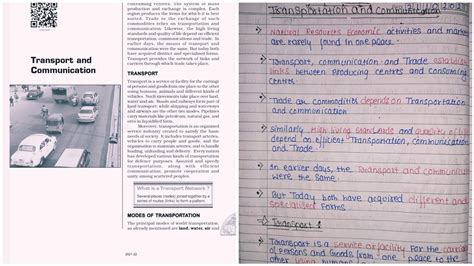 Transport and
Communication
consuming centres. The system of mass
production and exchange is complex. Each
region produces the items for which it is best
suited. Trade or the exchange of such
commodities relies on transportation and
communication. Likewise, the high living
standards and quality of life depend on efficient
transportation, communications and trade. In
earlier days, the means of transport and
communication were the same. But today both
have acquired distinct and specialised forms.
Transport provides the network of links and
carriers through which trade takes place.
TRANSPORT
Transport is a service or facility for the carriage
of persons and goods from one place to the other
using humans, animals and different kinds of
vehicles. Such movements take place over land,
water and air. Roads and railways form part of
land transport; while shipping and waterways
and airways are the other two modes. Pipelines
carry materials like petroleum, natural gas, and
ores in liquidified form.
Moreover, transportation is an organised
service industry created to satisfy the basic
needs of society. It includes transport arteries,
vehicles to carry people and goods, and the
organisation to maintain arteries, and to handle
loading, unloading and delivery. Every nation
has developed various kinds of transportation for
defence purposes. Assured and speedy
transportation, along with efficient
communication, promote cooperation and
unity among scattered peoples.
What is a Transport Network ?
Several places (nodes) joined together by a
series of routes (links) to form a pattern.
MODES OF TRANSPORTATION
The principal modes of world transportation,
as already mentioned are land, water, air and
2021-22
Transportation and communication
Natural Resources Economic activities and market
are rarely found in one place.
Transport, communication and Trade establish
links between producing centres and consuming
centres.
Trade or commodities depends on Transportation
and communication
Similarly High living standards and quality of life
depend on efficient Transportation, communication
and Trade
In earlier days, the Transport and communication
were the same.
But Today both have acquired different and
specialised forms
Transport
Transport is a service or facility for the carriage
of Persons and Goods from one place to the